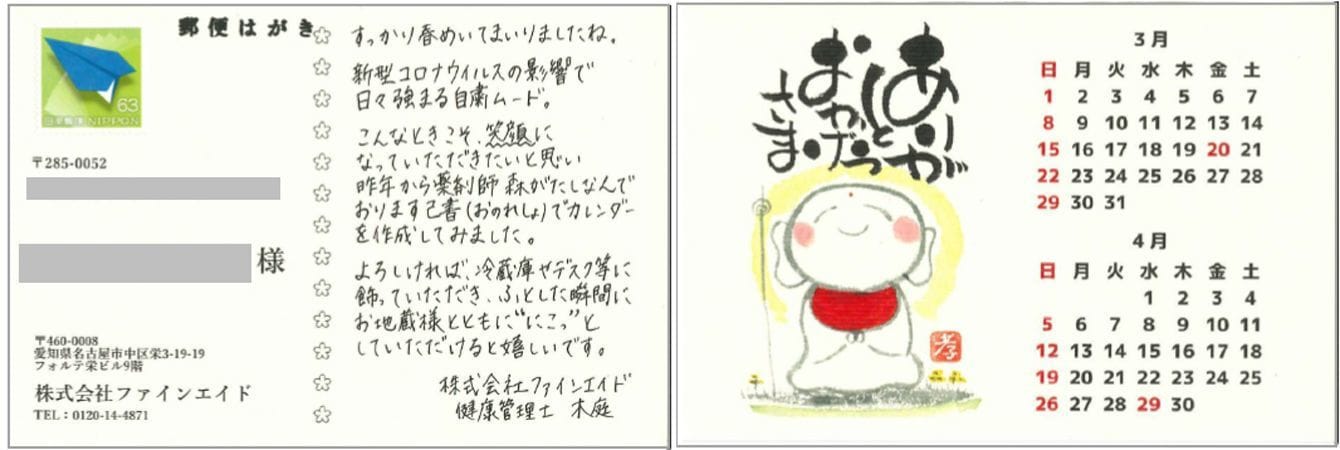 郵便はがき
63
日本郵便 NIPPON
〒285-0052
様
〒460-0008
愛知県名古屋市中区栄3-19-19
フォルテ栄ビル9階
株式会社ファインエイド
TEL：0120-14-4871
すっかり春めいてまいりましたね。
新型コロナウイルスの影響で
日々強まる自粛ムード。
こんなときこそ、笑顔に
なっていただきたいと思い
昨年から薬剤師 森がたしなんで
おります己書(おのれしょ)でカレンダー
を作成してみました。
よろしければ、冷蔵庫やデスク等に
飾っていただき、ふとした瞬間に
お地蔵様とともに"にこっ"と
していただけると嬉しいです。
株式会社ファインエイド
健康管理士 木庭
ありが
とう
おかげ
さま
3月
日 月 火 水 木 金 土
1 2 3 4 5 6 7
8 9 10 11 12 13 14
15 16 17 18 19 20 21
22 23 24 25 26 27 28
29 30 31
4月
日 月 火 水 木 金 土
1 2 3 4
5 6 7 8 9 10 11
12 13 14 15 16 17 18
19 20 21 22 23 24 25
26 27 28 29 30